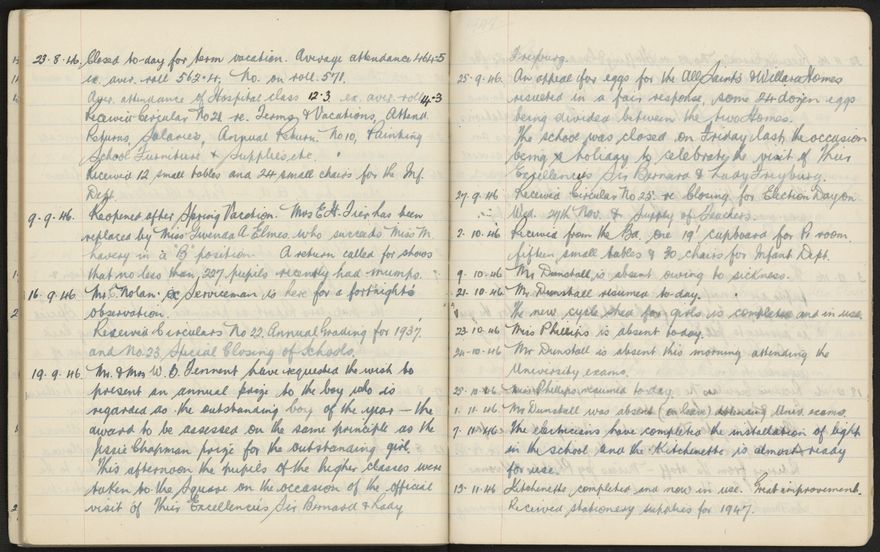 23-8-46. Closed to-day for term vacation. Average attendance 464.5
ex. aver. roll 562.4. No. on roll. 571.
Aver. attendance of Hospital class 12.3 ex. aver. roll 14.3
Received Circular No 21 re. Terms & Vacations, Attend.
Returns, Salaries, Annual Return. No 10, Painting
School Furniture & Supplies etc.
Received 12 small tables and 24 small chairs for the Inf.
Dept.
9-9-46. Reopened after Spring Vacation. Mrs E. H. Frier has been
replaced by Miss Gwenda A. Elmes who succeeds Miss M
havery in a "B" position. A return called for shows
that no less than 227 pupils recently had mumps.
16-9-46 Mr. E. Nolan. ex Serviceman is here for a fortnight's
observation.
Received Circulars No 22. Annual Grading for 1937.
and No. 23. Special Closing of Schools.
19-9-46. Mr. & Mrs W. O. Tennent have requested the wish to
present an annual prize to the boy who is
regarded as the outstanding boy of the year — the
award to be assessed on the same principle as the
Jessie Chapman prize for the outstanding girl.
This afternoon the pupils of the higher classes were
taken to the Square on the occasion of the official
visit of Their Excellencies Sir Bernard & Lady
Freyburg.
25-9-46. An appeal for eggs for the All Saints & Willard Homes
resulted in a fair response, some 24 dozen eggs
being divided between the two Homes.
The school was closed on Friday last, the occasion
being a holiday to celebrate the visit of Their
Excellencies Sir Bernard & Lady Freyburg.
27-9-46 Received Circular No 25. re Closing for Election Day on
Wed. 27th Nov. & Supply of Teachers.
2-10-46 Received from the Bd. one 19' cupboard for Pr room.
fifteen small tables & 30 chairs for Infant Dept.
9-10-46 Mr Dunstall is absent owing to sickness.
21-10-46. Mr. Dunstall resumed to-day.
The new cycle shed for girls is completed and in use.
23-10-46. Miss Phillips is absent to-day.
24-10-46 Mr Dunstall is absent this morning attending the
University exams.
25-10-46 Miss Phillips resumed to-day.
1-11-46. Mr Dunstall was absent (on leave) attending Univ. exams.
7-11-46 The electricians have completed the installation of light
in the school and the Kitchenette is almost ready
for use.
13-11-46 Kitchenette completed and now in use. Great improvement.
Received stationery supplies for 1947.